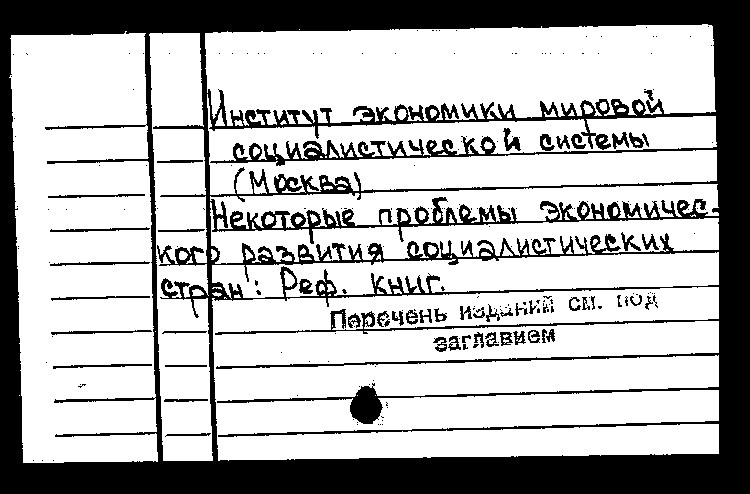 Институт экономики мировой
социалистической системы
(Москва)
Некоторые проблемы экономичес-
кого развития социалистических
стран: Реф. книг.
Перечень изданий см. под
заглавием